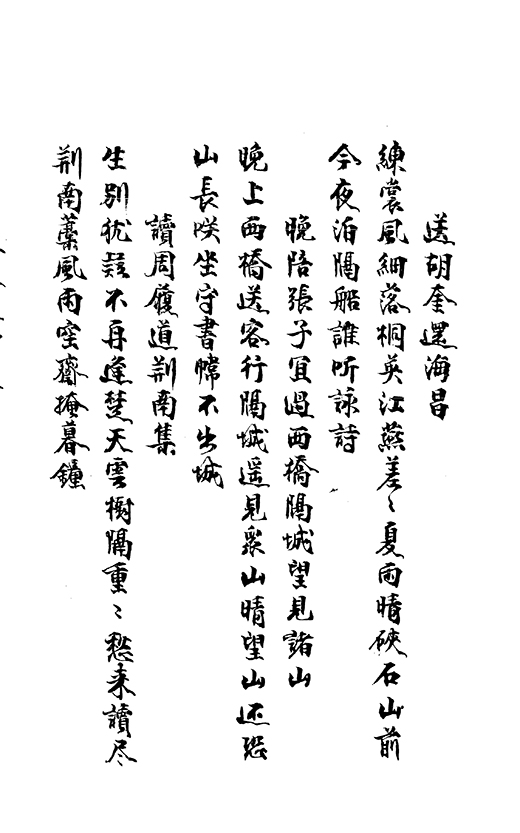 送胡奎還海昌
練裳風細落桐英江燕差〻夏雨晴硤石山前
今夜泊隔船誰聽詠詩
晚陪張子宜過西橋隔城望見諸山
晚上西橋送客行隔城遥見衆山晴望山还恐
山長咲坐守書幃不出城
讀周履道荆南集
生别犹疑不再逢楚天雲樹隔重〻愁来讀尽
荆南藁風雨空齋掩暮鐘